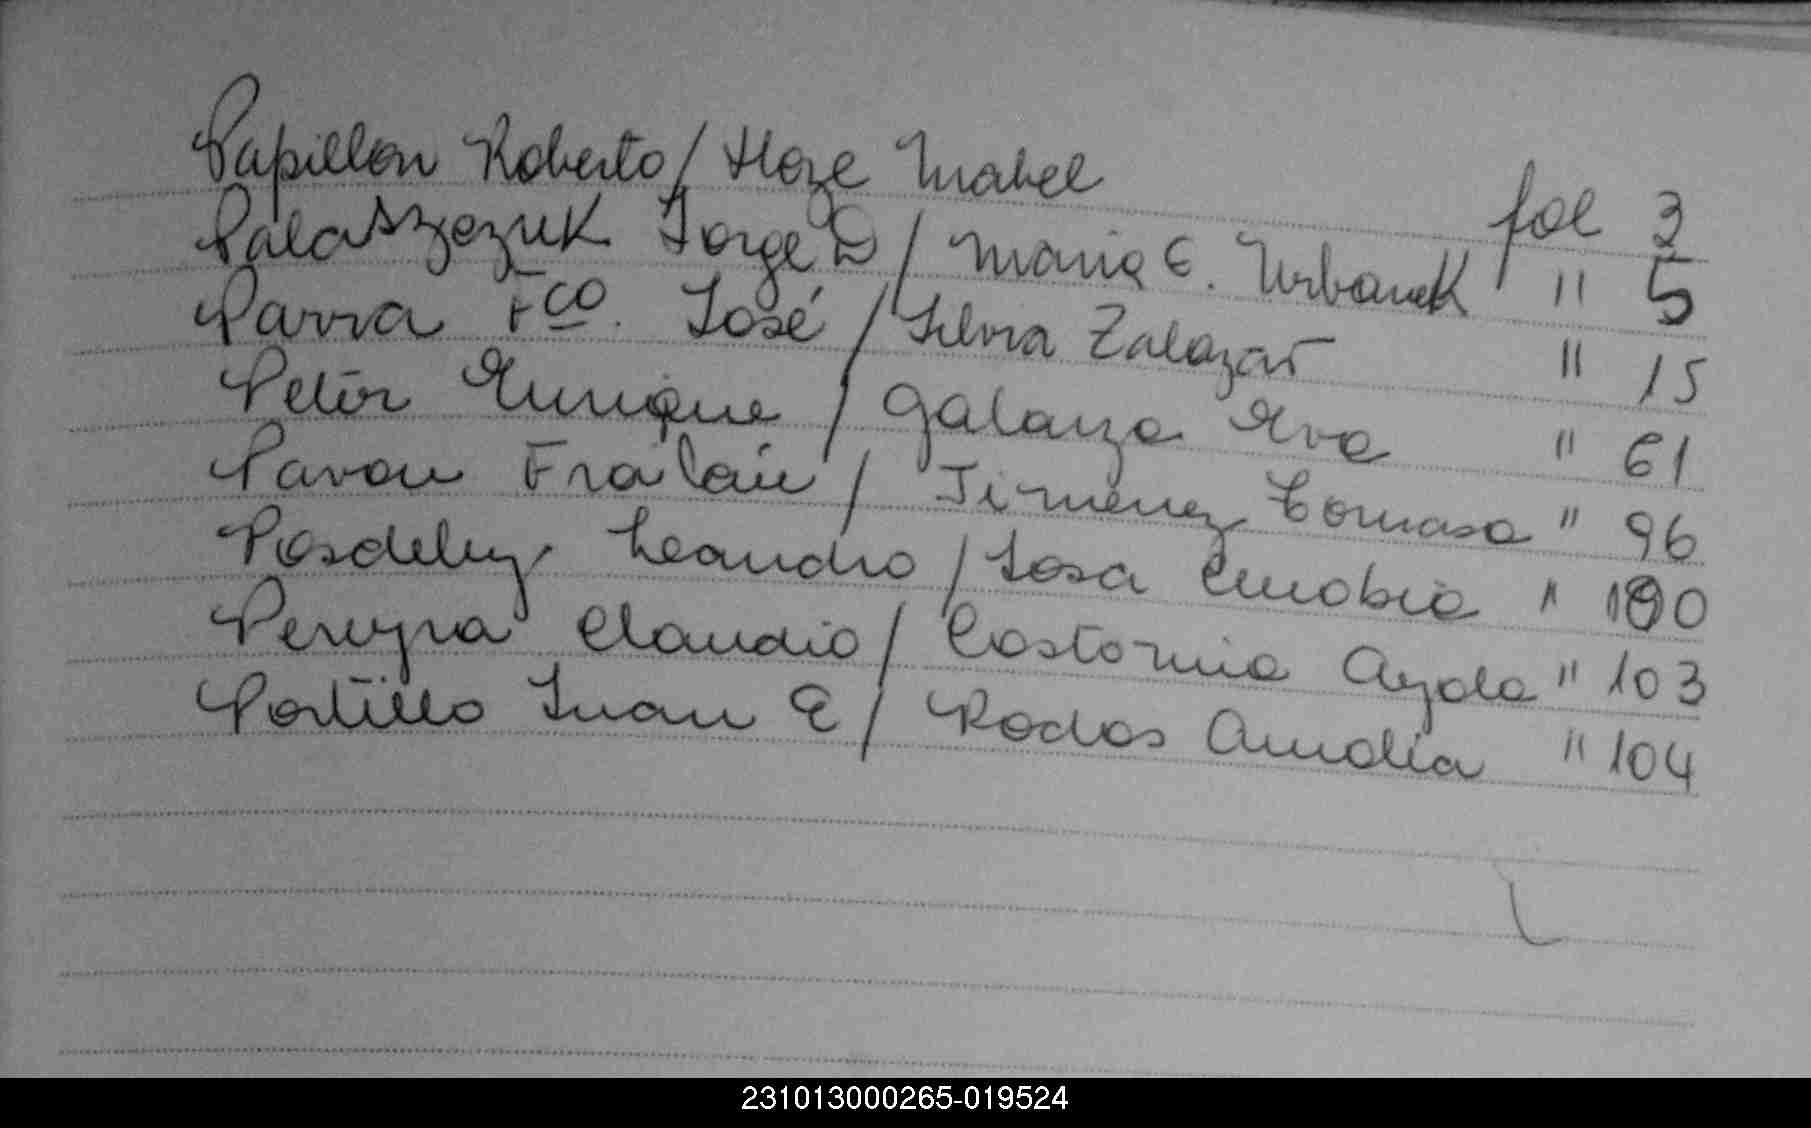 Papillon Roberto / Hoze Mabel fol 3
Palaszezuk Jorge D / Maria E. Urbanek " 5
Parra Fco. José / Silvia Zalazar " 15
Petér Enrique / Galarza Eva " 61
Pavon Frailan / Jimenez Tomasa " 96
Leandro / Sosa " 100
Pereyra Claudio / Costornia Ayala " 103
Portillo Juan E / Rodas Amalia " 104
231013000265-019524